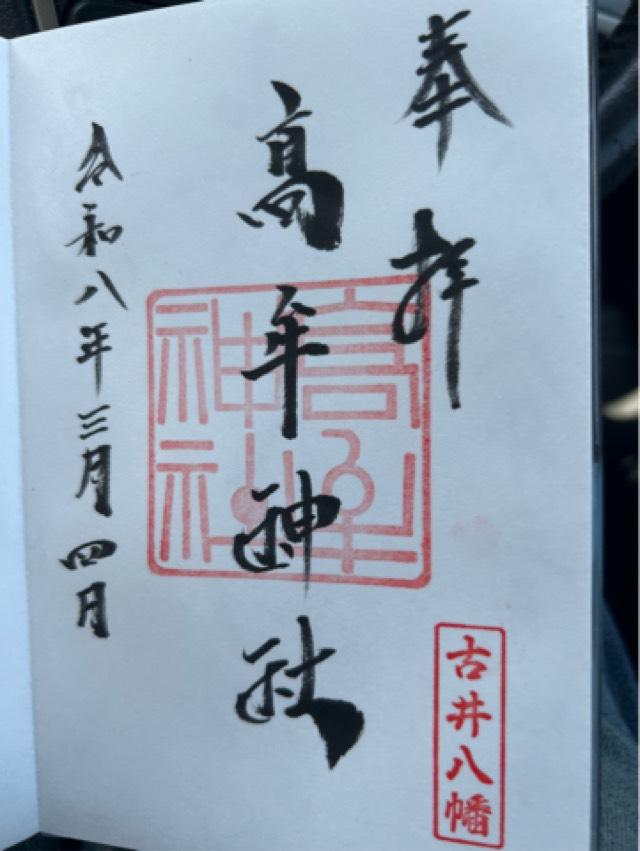 奉拝
高牟神社
高牟
神社
古井八幡
令和八年三月四日